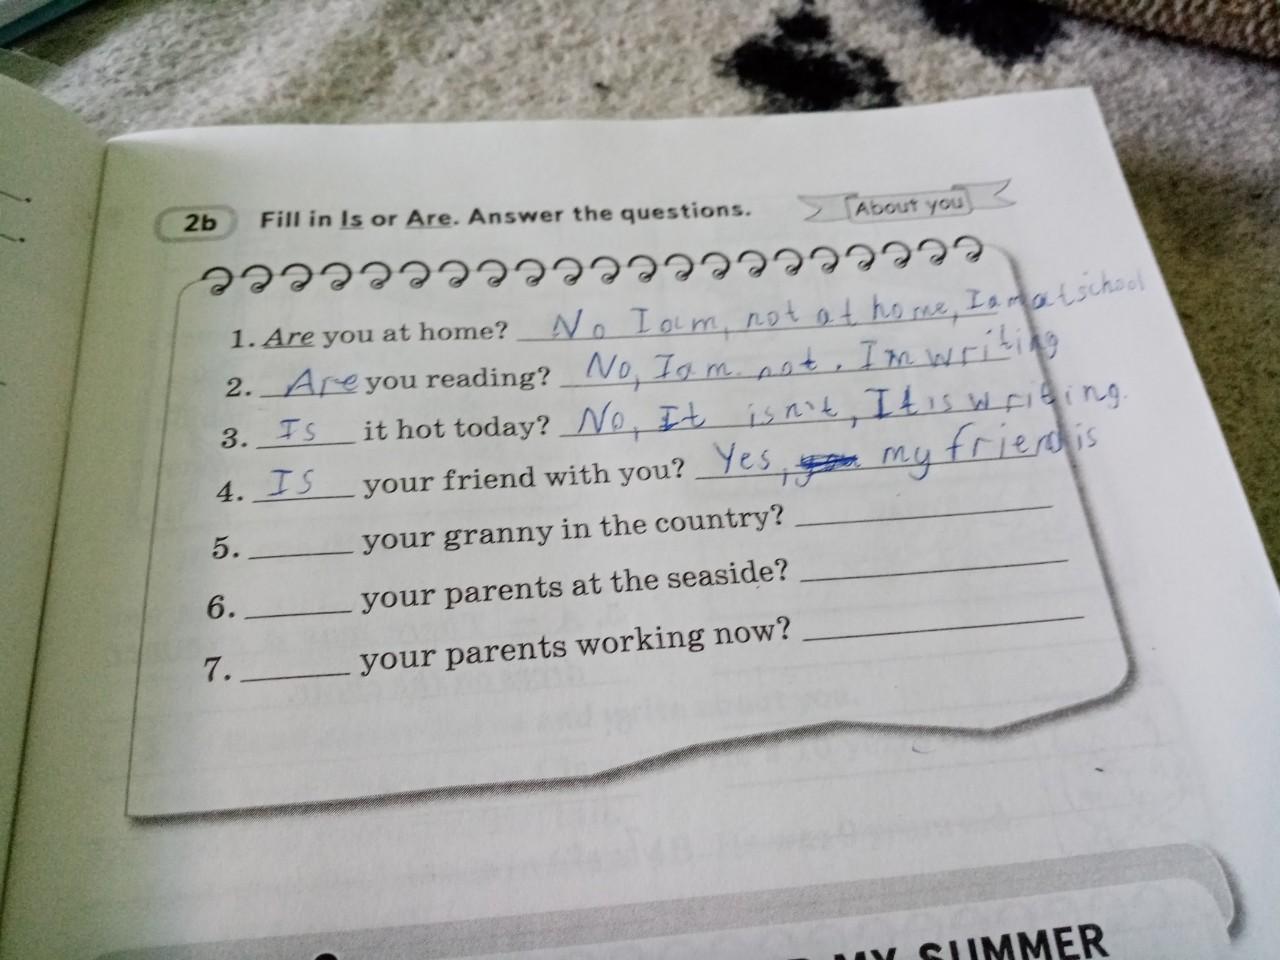 2b Fill in Is or Are. Answer the questions.
About you
1. Are you at home? No I am, not at home, I am at school
2. Are you reading? No, I am not. Im writing
3. Is it hot today? No, It isn't, It is writing.
4. Is your friend with you? Yes, my friend is
5. ______ your granny in the country? ______
6. ______ your parents at the seaside? ______
7. ______ your parents working now? ______
MY SUMMER